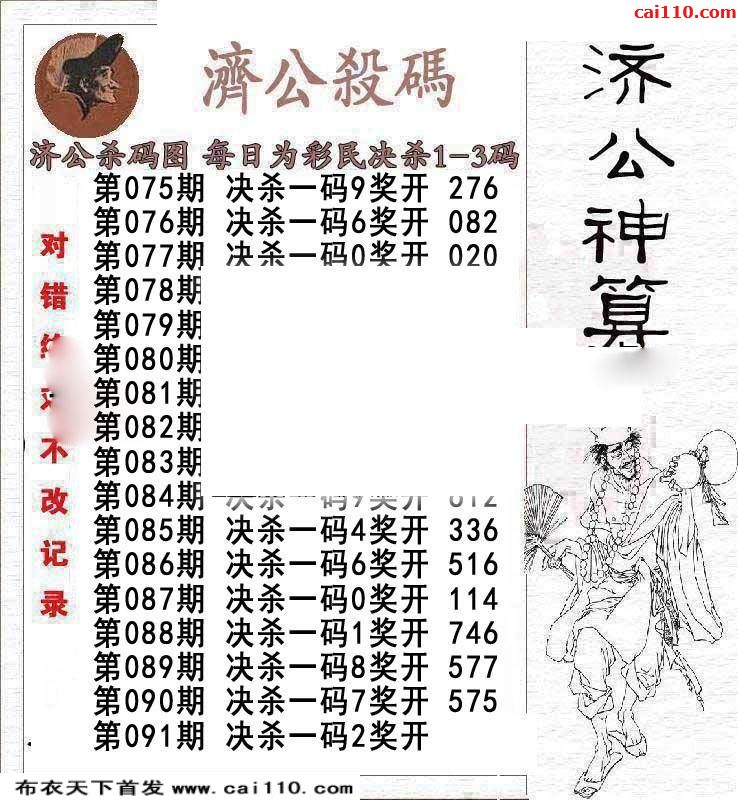 cai110.com
濟公殺碼
济公神算
济公杀码图 每日为彩民决杀1-3码
第075期 决杀一码9奖开 276
第076期 决杀一码6奖开 082
第077期 决杀一码0奖开 020
第078期
第079期
第080期
第081期
第082期
第083期
第084期 决杀一码9奖开 612
第085期 决杀一码4奖开 336
第086期 决杀一码6奖开 516
第087期 决杀一码0奖开 114
第088期 决杀一码1奖开 746
第089期 决杀一码8奖开 577
第090期 决杀一码7奖开 575
第091期 决杀一码2奖开
对错
不改记录
布衣天下首发 www.cai110.com